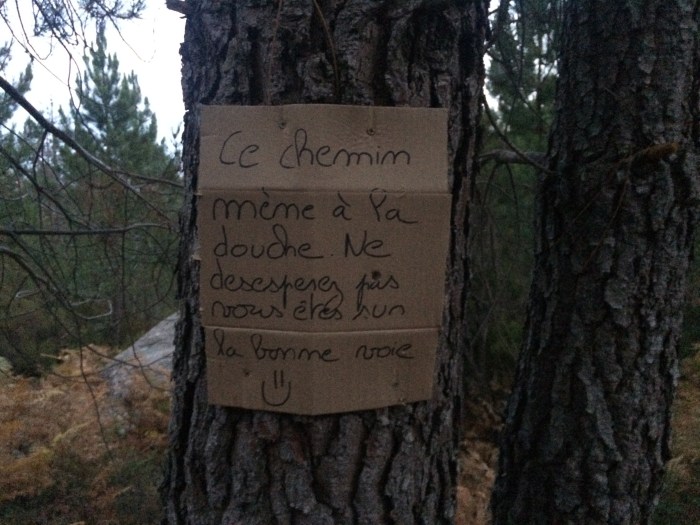 Ce chemin
mène à la
douche. Ne
desesperez pas
vous étes sur
la bonne voie